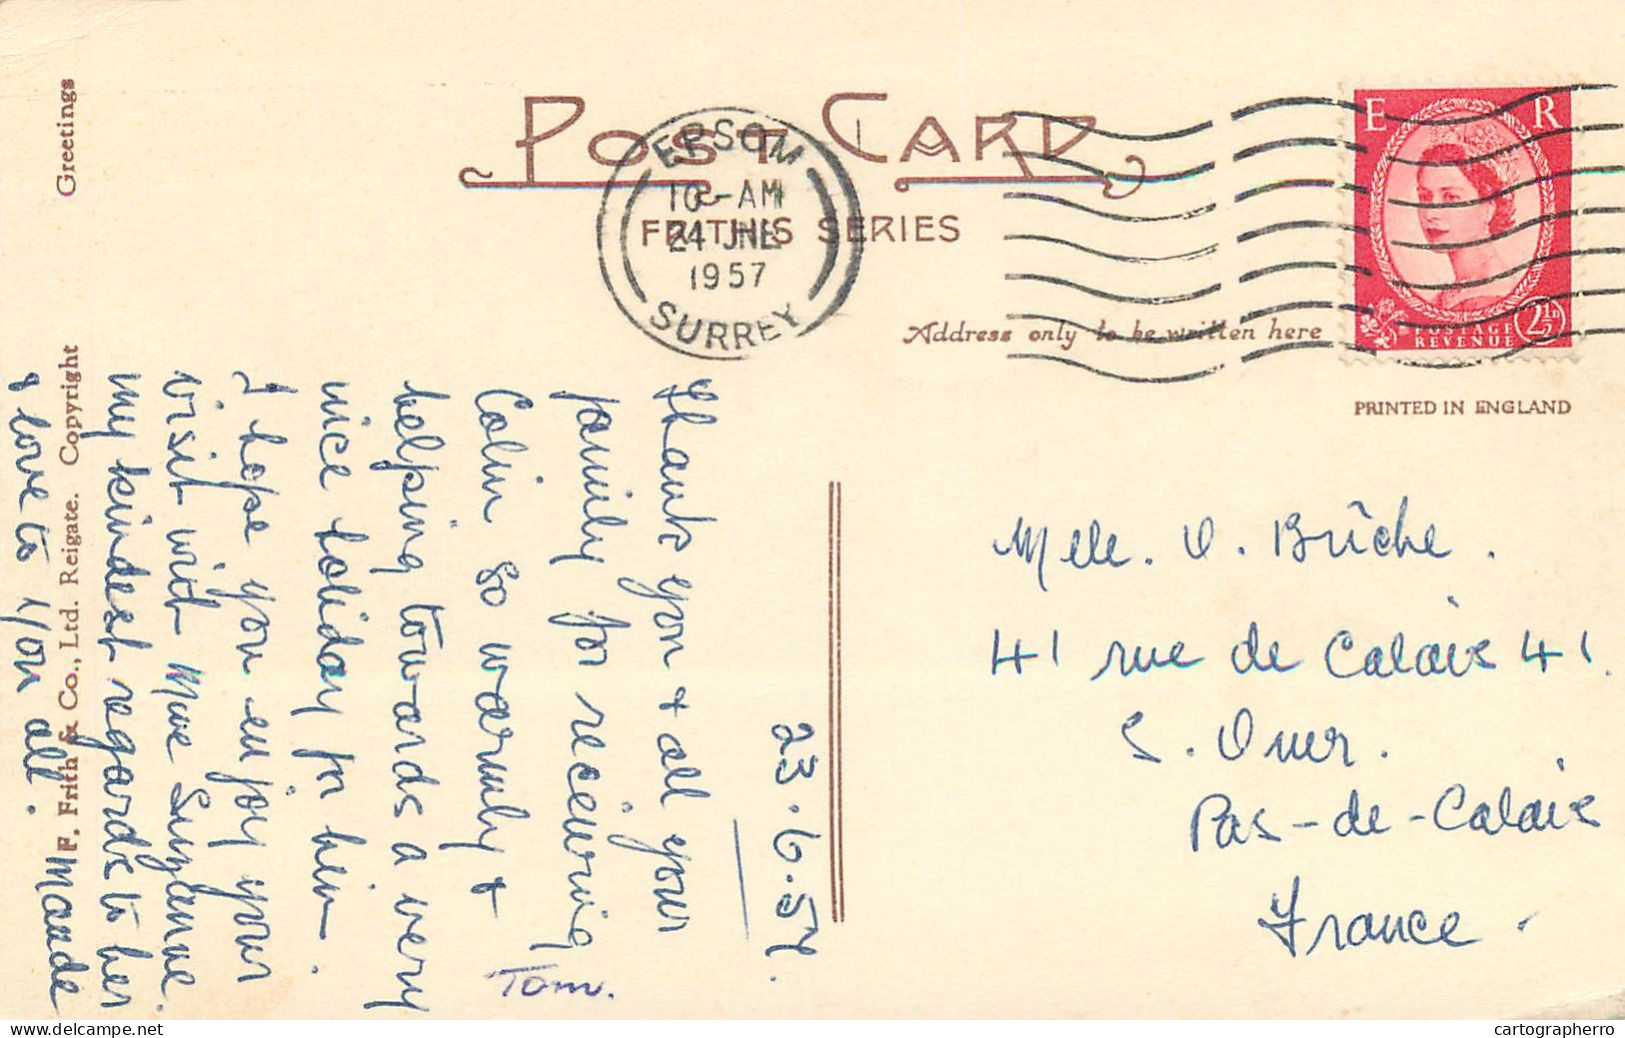 POST CARD
FRITH'S SERIES
EPSOM
10 - AM
24 JNE
1957
SURREY
E R
POSTAGE
REVENUE
2½D
Address only to be written here
PRINTED IN ENGLAND
Greetings
F. Frith & Co., Ltd. Reigate. Copyright
23.6.57.
Thank you & all your
family for receiving
Colin so warmly &
helping towards a very
nice holiday for him.
I hope you enjoy your
visit with Mme Suzanne.
my kindest regards to her
& love to you all. Maude
Tom.
Melle. O. Brûche.
41 rue de Calais 41.
S. Omer.
Pas-de-Calais
France.
cartographerro